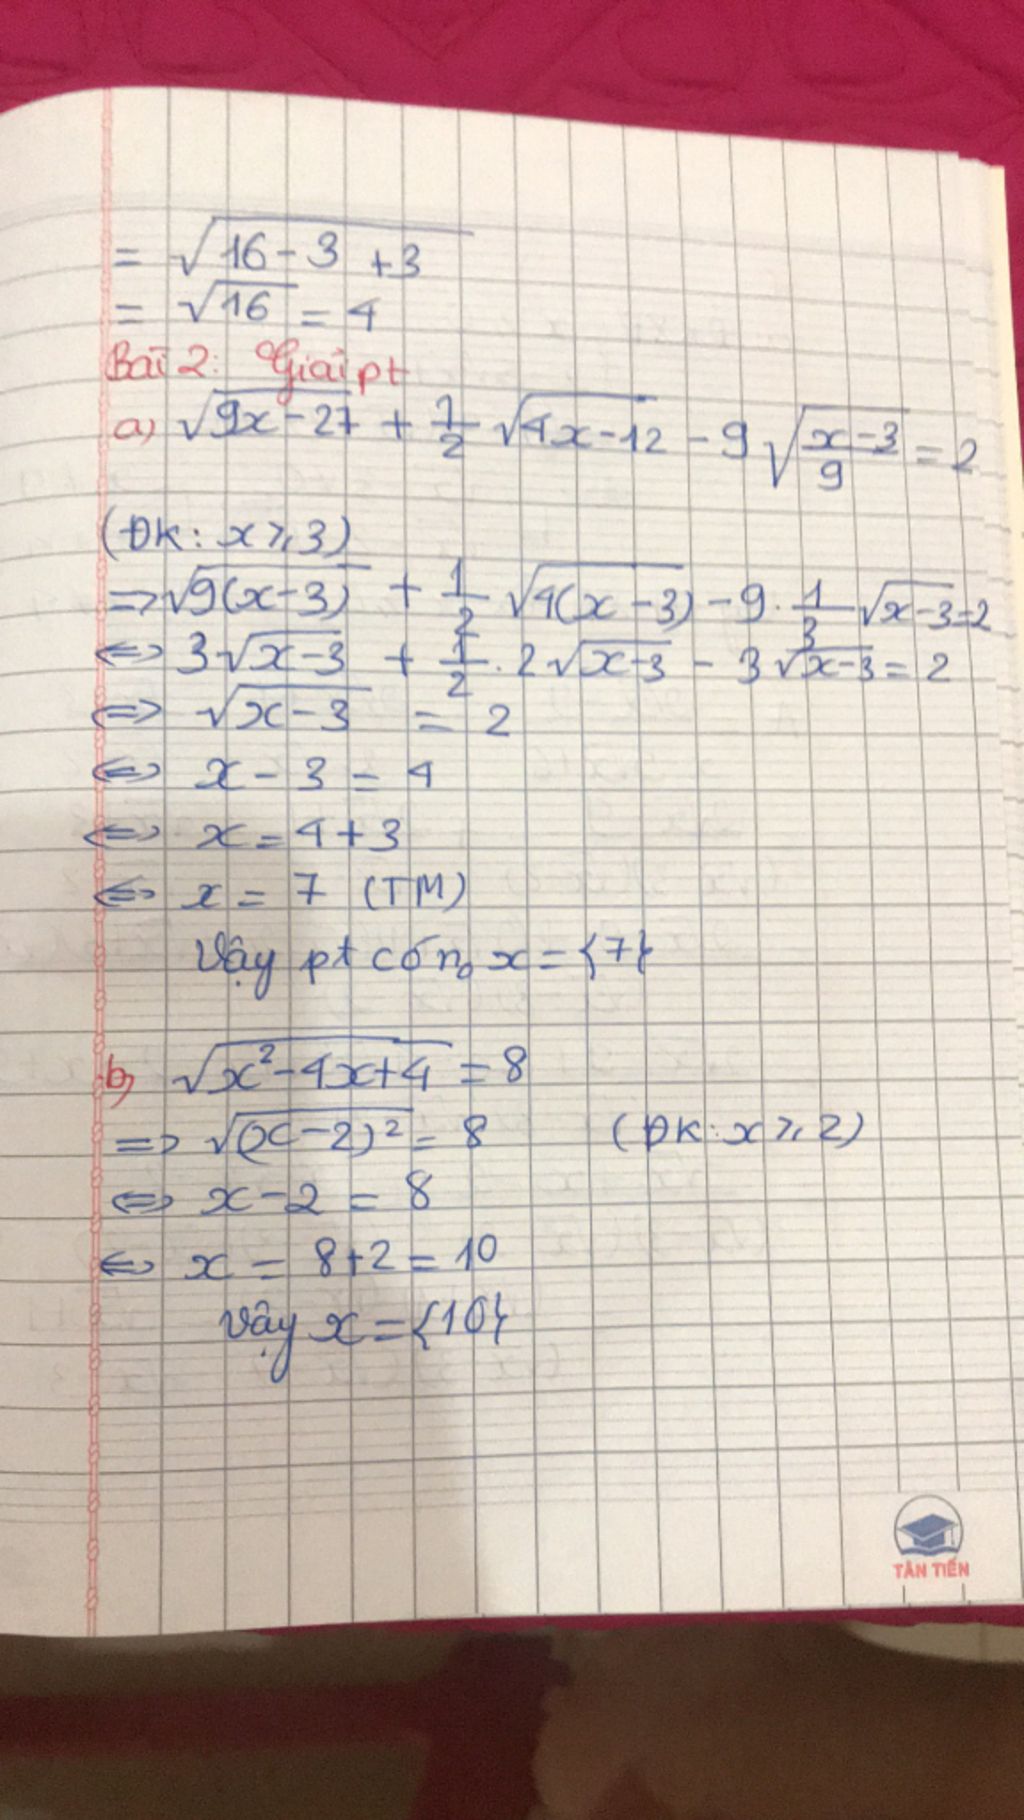 = √(16 - 3 + 3)
= √16 = 4
Bài 2: Giải pt
a) √(9x - 27) + 1/2 √(4x - 12) - 9 √((x - 3)/9) = 2
(ĐK: x ⩾ 3)
=> √(9(x - 3)) + 1/2 √(4(x - 3)) - 9 . 1/3 √(x - 3) = 2
<=> 3√(x - 3) + 1/2 . 2√(x - 3) - 3√(x - 3) = 2
<=> √(x - 3) = 2
<=> x - 3 = 4
<=> x = 4 + 3
<=> x = 7 (TM)
Vậy pt có no x = {7}
b) √(x² - 4x + 4) = 8
=> √((x - 2)²) = 8 (ĐK: x ⩾ 2)
<=> x - 2 = 8
<=> x = 8 + 2 = 10
Vậy x = {10}
TÂN TIẾN